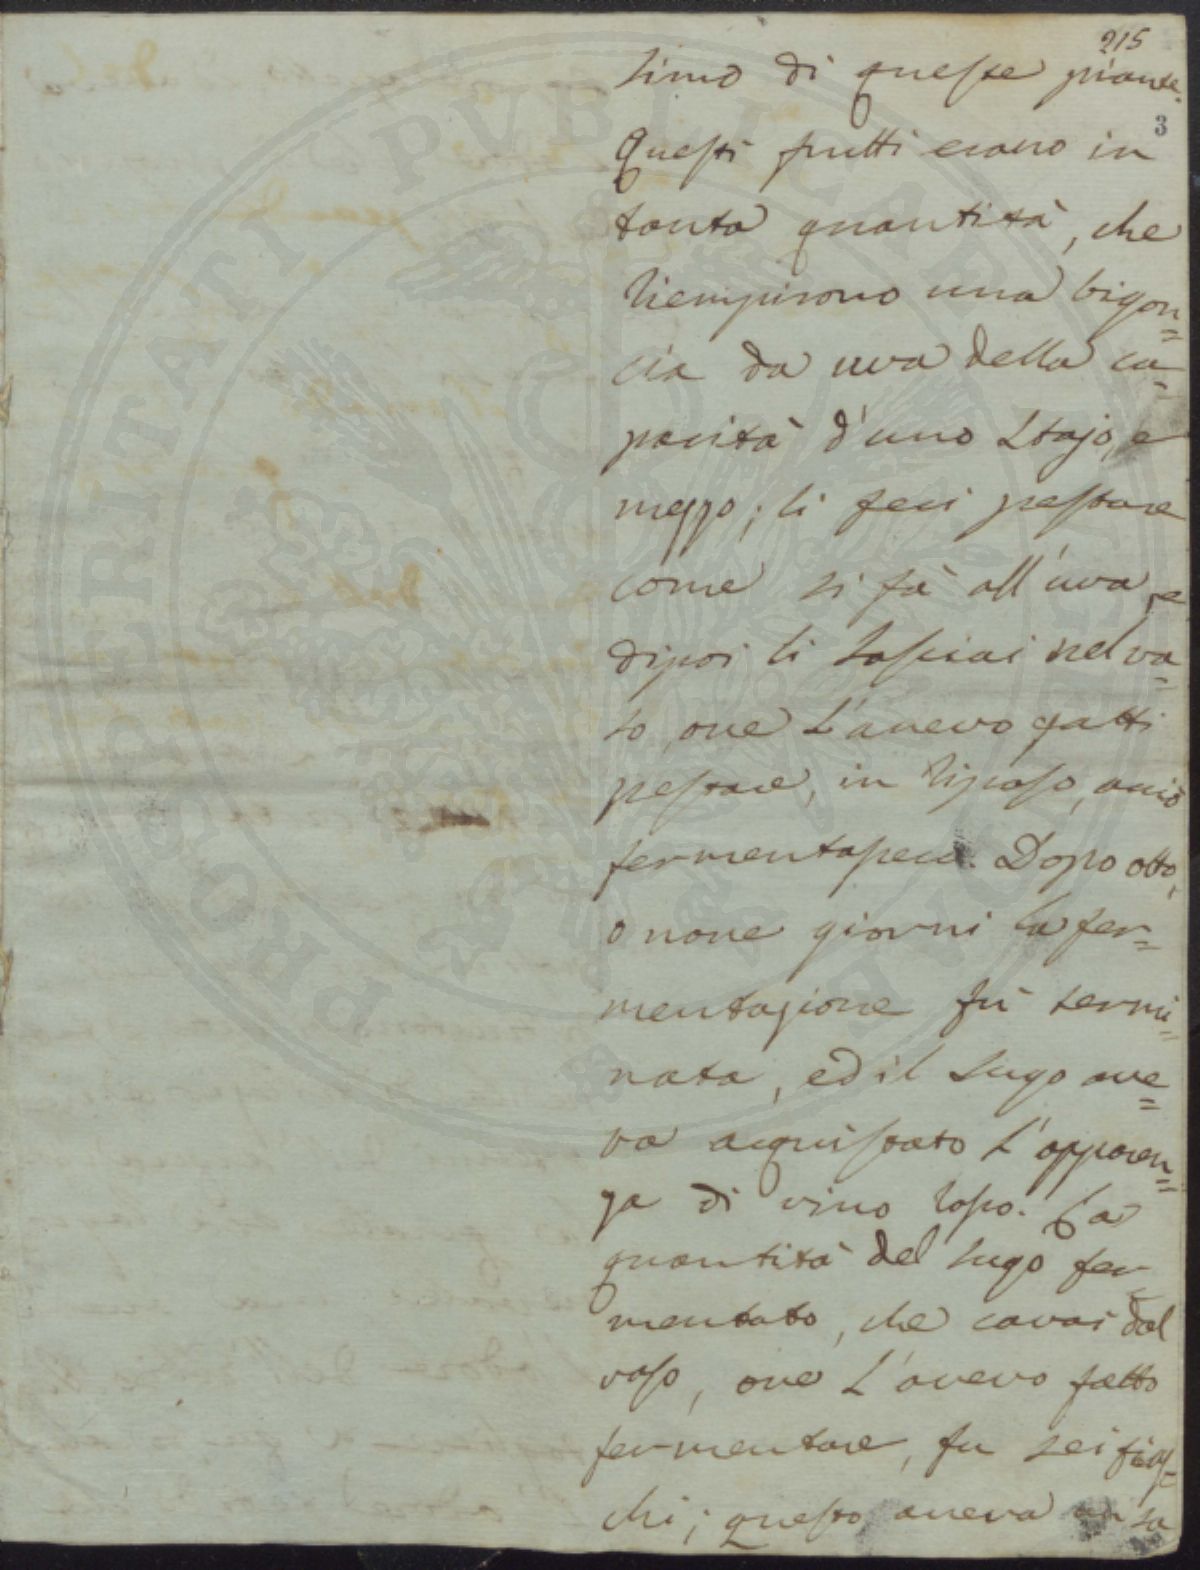 215
simo di queste piante.
3
Questi frutti erano in
tanta quantità, che
riempirono una bigon=
cia da uva della ca=
pacità d'uno Stajo, e
mezzo; li feci pestare
come si fà all'uva, e
dipoi li lasciai nel va=
so, ove l'avevo fatti
pestare, in riposo, acciò
fermentassero. Dopo otto,
o nove giorni la fer=
mentazione fù termi=
nata, ed il sugo ave=
va acquistato l'apparen=
za di vino rosso. La
quantità del sugo fer
mentato, che cavai dal
vaso, ove l'avevo fatto
fermentare, fu sei fias=
chi; questo aveva un sa
PROSPERITATI PUBLICAE AUGENDAE